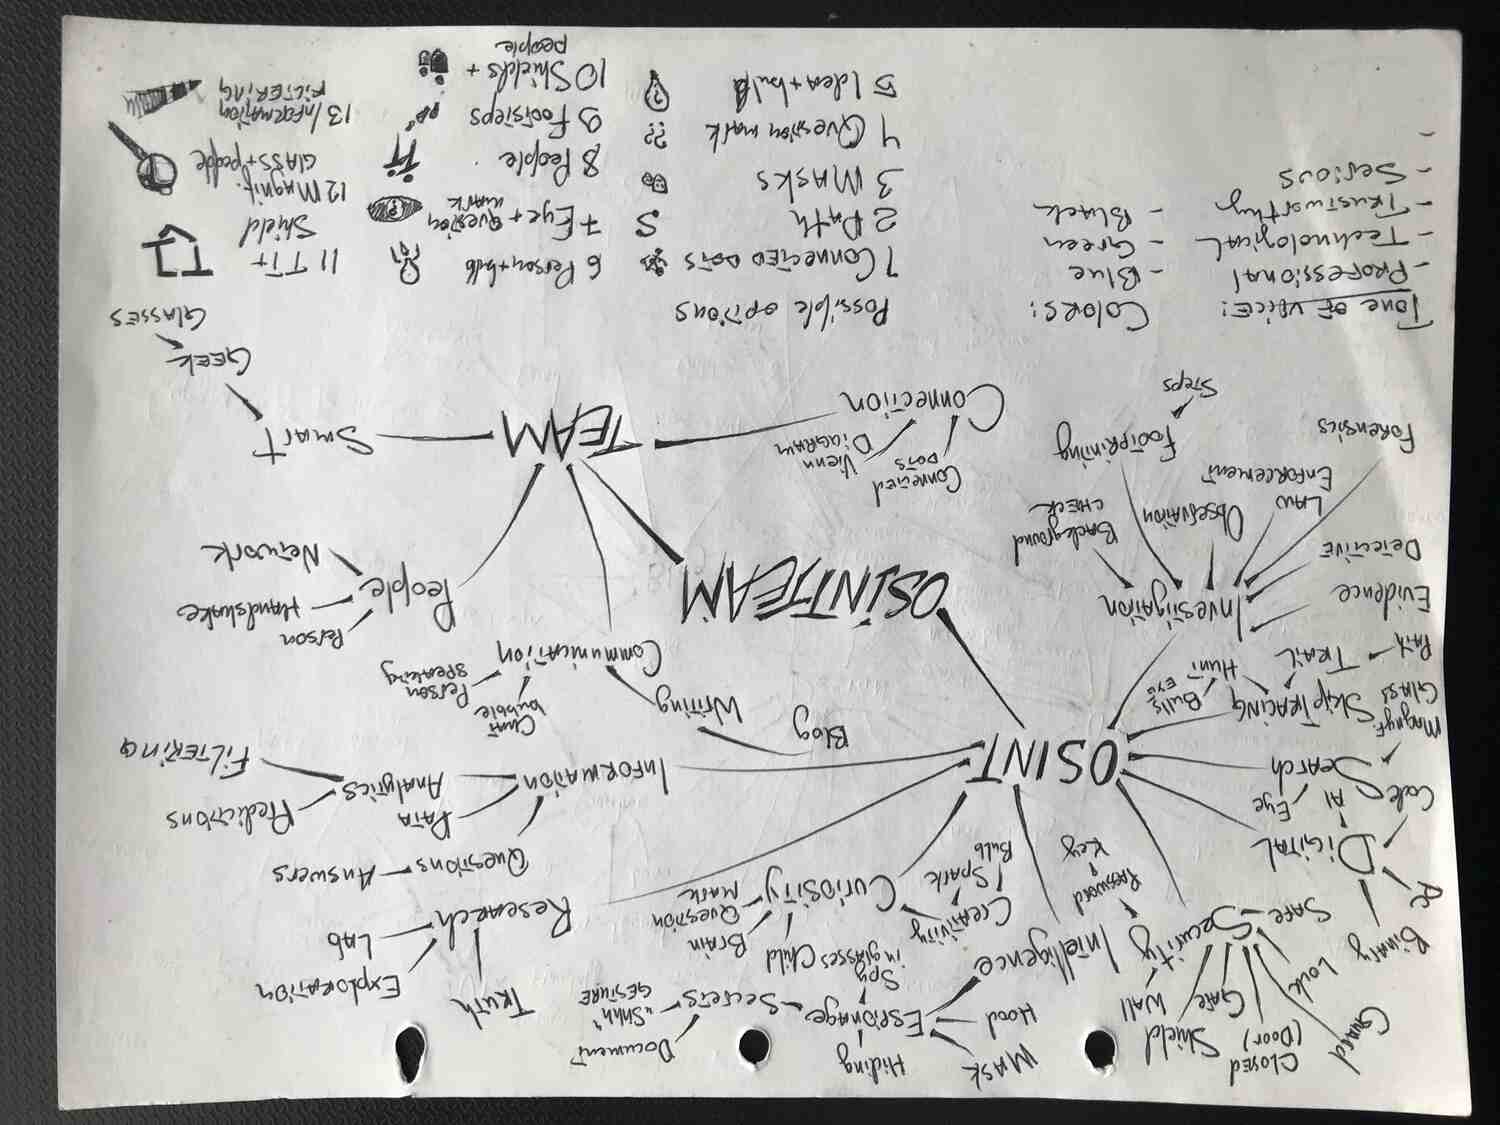 Guard
CLOSED
(Door)
Shield
GATE
WALL
Lock
SAFE
Security
Password
Key
Binary
PC
DIGITAL
Code
AI
Eye
SEARCH
Magnyf.
GLASS
SkipTRACING
Bulls
EYE
Hunt
TRAIL
Path
Investigation
Evidence
DETECTIVE
LAW
ENFORCEMENT
Observation
Background
CHECK
Forensics
Footprinting
Steps
MASK
Hood
Hiding
Espionage
Spy
in glasses
Secrets
Document
"Shhh"
GESTURE
Intelligence
Creativity
Spark
Bulb
Child
Brain
Question
MARK
Curiosity
TRUTH
Exploration
LAB
RESEARCH
Questions
Answers
DATA
Analytics
Predictions
FILTERING
INFORMATION
OSINT
Blog
Writing
Chat
bubble
Person
speaking
Communication
OSINTTEAM
People
Person
Handshake
Network
Connected
DOTS
Vienn
DIAGRAM
Connection
TEAM
SMART
GEEK
GLASSES
Tone OF VOICE:
- PROFESSIONAL
- Technological
- Trustworthy
- Serious
-
Colors:
- Blue
- Green
- Black
Possible options
1 CONNECTED DOTS
2 Path
3 MASKS
4 Question mark ??
5 Idea + bulb ?
6 Person + bulb
7 Eye + Question
mark ?
8 People
9 Footsteps
10 Shields +
people
11 TT +
Shield
12 Magnif.
GLASS + people
13 INFORMATION
FILTERING